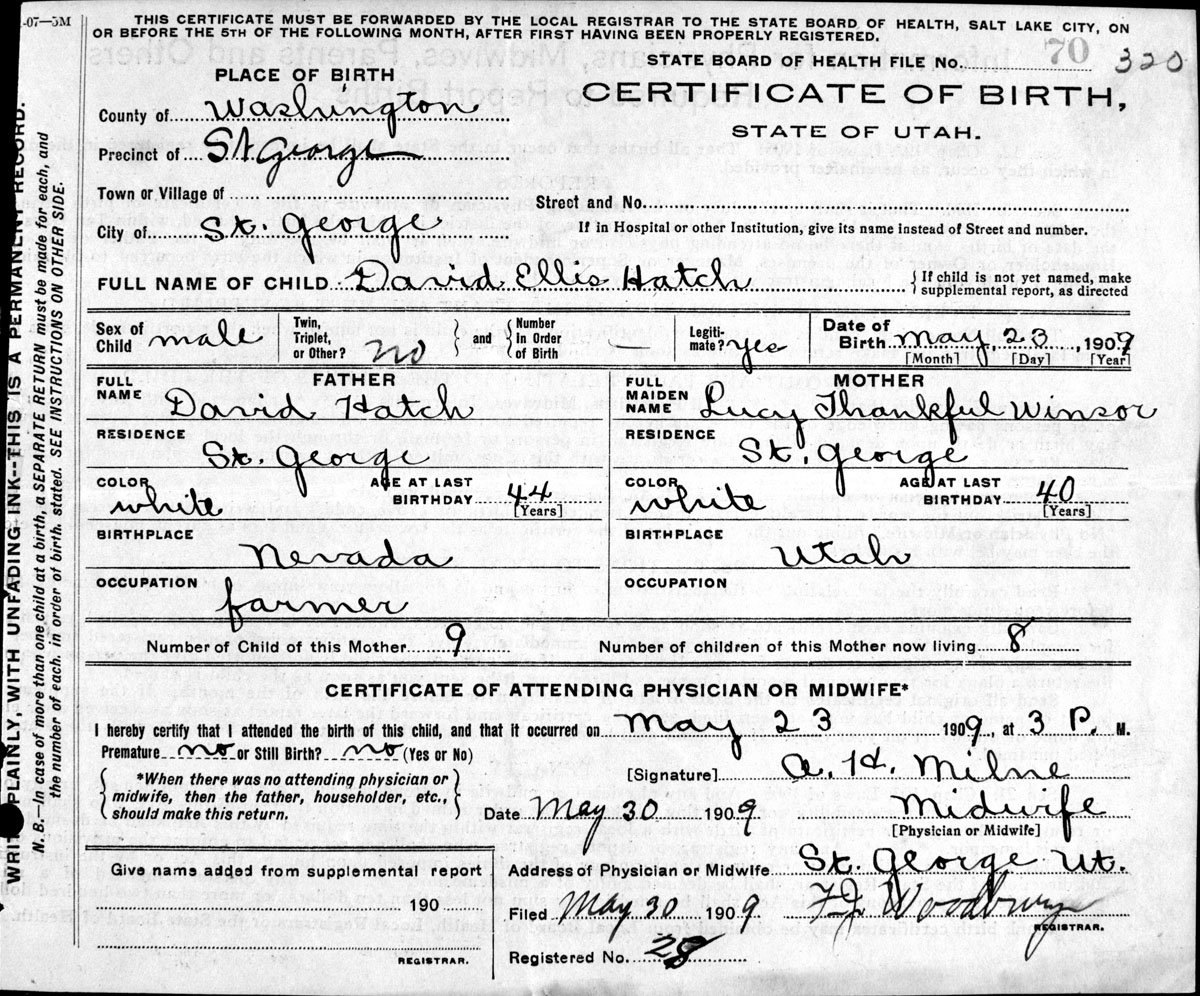 -07—5M
THIS CERTIFICATE MUST BE FORWARDED BY THE LOCAL REGISTRAR TO THE STATE BOARD OF HEALTH, SALT LAKE CITY, ON
OR BEFORE THE 5TH OF THE FOLLOWING MONTH, AFTER FIRST HAVING BEEN PROPERLY REGISTERED.
STATE BOARD OF HEALTH FILE No. 70 320
PLACE OF BIRTH
CERTIFICATE OF BIRTH,
STATE OF UTAH.
County of Washington
Precinct of St George
Town or Village of
Street and No.
City of St. George
If in Hospital or other Institution, give its name instead of Street and number.
FULL NAME OF CHILD David Ellis Hatch { If child is not yet named, make supplemental report, as directed
Sex of Child male Twin, Triplet, or Other? no } and { Number In Order of Birth Legiti-mate? yes Date of Birth May 23, 1909
[Month] [Day] [Year]
FATHER
FULL NAME David Hatch
RESIDENCE St. George
COLOR white AGE AT LAST BIRTHDAY 44 [Years]
BIRTHPLACE Nevada
OCCUPATION farmer
MOTHER
FULL MAIDEN NAME Lucy Thankful Winsor
RESIDENCE St. George
COLOR white AGE AT LAST BIRTHDAY 40 [Years]
BIRTHPLACE Utah
OCCUPATION
Number of Child of this Mother 9 Number of children of this Mother now living 8
CERTIFICATE OF ATTENDING PHYSICIAN OR MIDWIFE*
I hereby certify that I attended the birth of this child, and that it occurred on May 23 1909, at 3 P. M.
Premature no or Still Birth? no (Yes or No)
{ *When there was no attending physician or
midwife, then the father, householder, etc.,
should make this return. }
[Signature] A. H. Milne
Date May 30 1909 Midwife
[Physician or Midwife]
Give name added from supplemental report
190
REGISTRAR.
Address of Physician or Midwife St. George Ut.
Filed May 30 1909 F.J. Woodbury
REGISTRAR.
Registered No. 28
WRITE PLAINLY, WITH UNFADING INK--THIS IS A PERMANENT RECORD.
N. B.—In case of more than one child at a birth, a SEPARATE RETURN must be made for each, and
the number of each, in order of birth, stated. SEE INSTRUCTIONS ON OTHER SIDE.